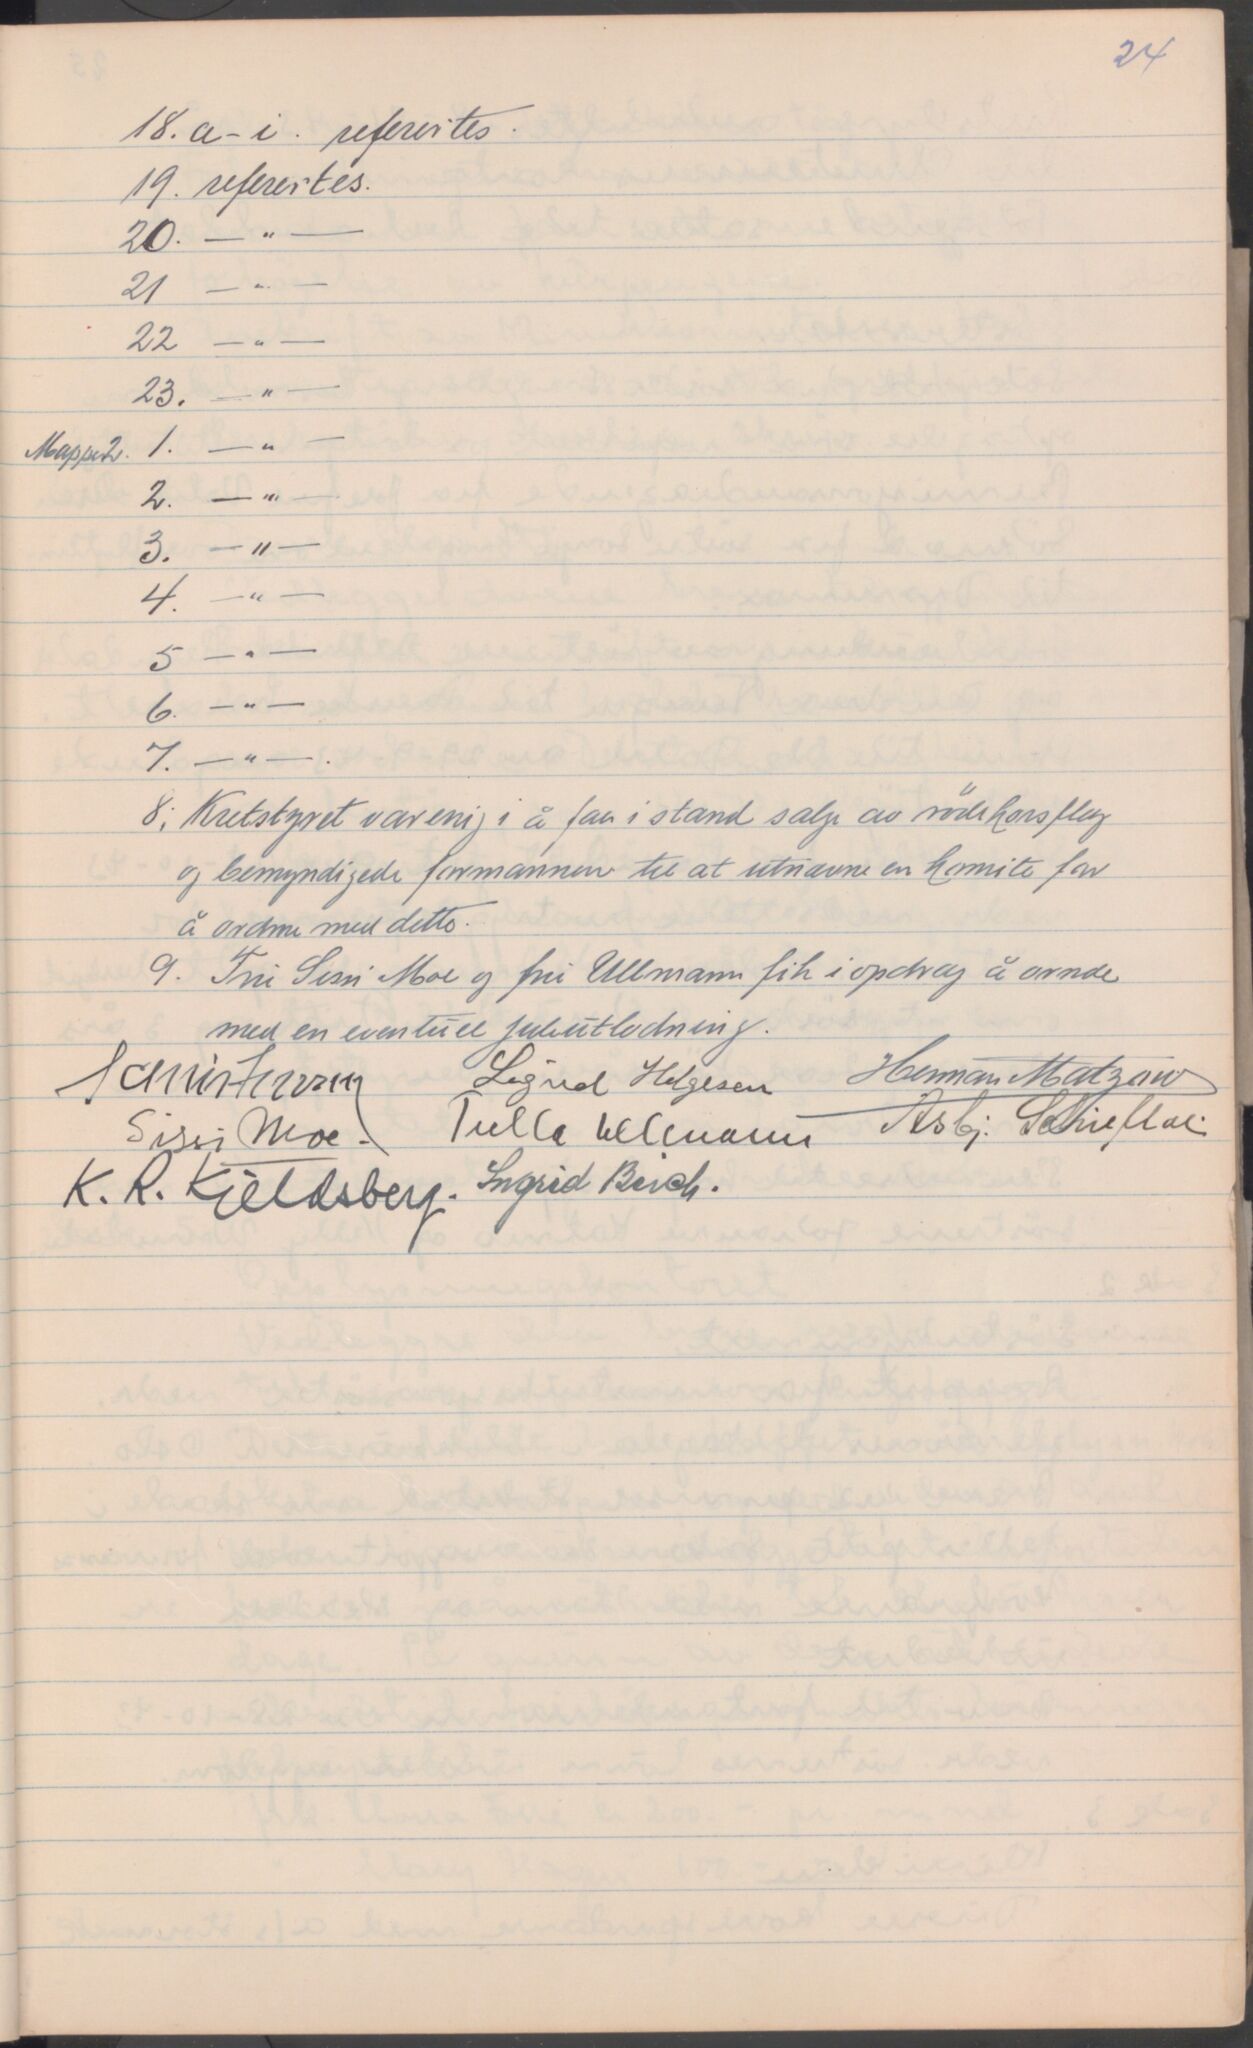 24
18. a-i. refereites.
19. refereites.
20. — " —
21 — " —
22 — " —
23. — " —
Mappe 2. 1. — " —
2. — " —
3. — " —
4. — " —
5 — " —
6. — " —
7. — " — .
8. Kretstyret var enig i å faa i stand salg av rödekorsflag
og bemyndigede formannen til at utnævne en komite for
å ordne med dette.
9. Fru Sissi Moe og fru Ullmann fik i opdrag å ornde
med en eventuell juleutlodning.
Sigrid Helgesen Herman Matzow
Sissi Moe. Tulla Ullmann Asbj.
K. R. Kjeldsberg. Ingrid Birch.